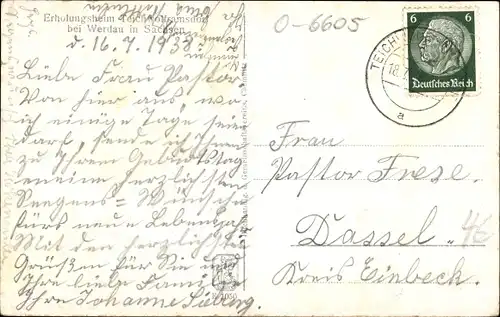 Erholungsheim Teichwolframsdorf
bei Werdau in Sachsen
d. 16.7.1938.
Liebe Frau Pastor
Von hier aus, wo
ich einige Tage sein
darf, sende ich Ihnen
zu Ihrem Geburtstag
einen herzlichsten
Seegens = Wünsche
fürs neue Lebensjahr
Mit den herzlichsten
Grüßen für Sie und
Ihre liebe Familie
Ihre Johanne Sieberg.
O-6605
6 6
Deutsches Reich
TEICH
18.
a
Frau
Pastor Frese.
Dassel.
Kreis Einbeck.